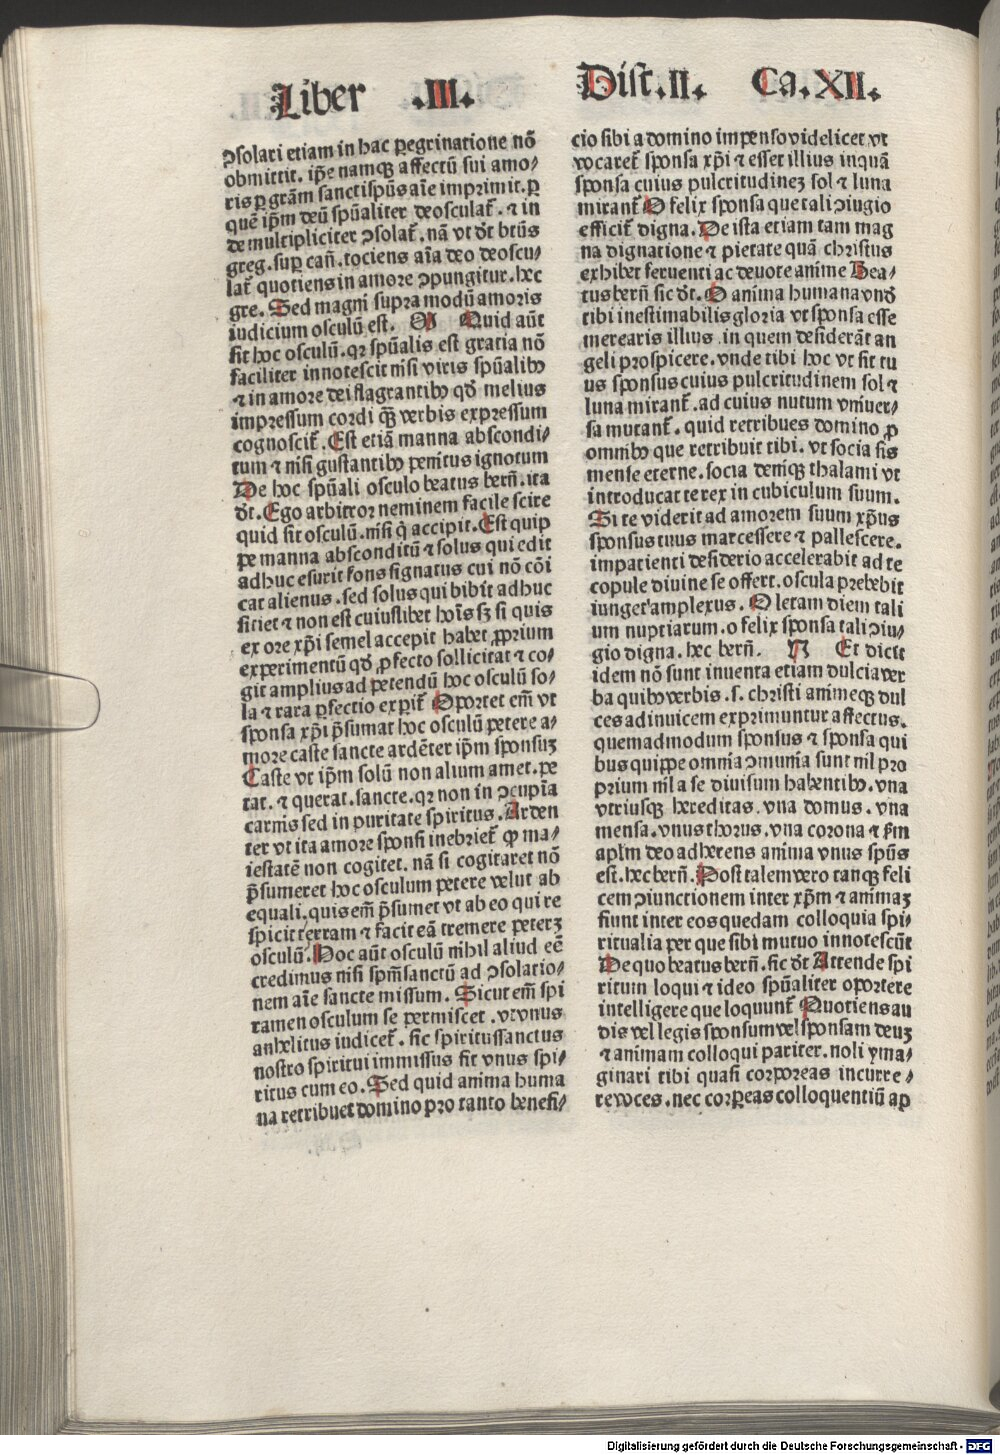 Liber .III.
Dist.II. Ca.XII.
ꝯsolari etiam in hac peregrinatione nõ
obmittit. ip̃e namqꝫ affectũ sui amo⸗
ris ꝑ grãm sanctisp̃us aĩe imprimit. ꝑ
quẽ ip̃m deũ sp̃ualiter deosculat̃. ⁊ in
de multipliciter ꝯsolat̃. nã vt dt̃ btũs
greg. suꝑ cañ. tociens aĩa deo deoscu⸗
lat̃ quotiens in amore ꝯpungitur. hec
gre. Sed magni supra modũ amoris
iudicium osculũ est. M Quid aũt
sit hoc osculũ. qꝛ sp̃ualis est gratia nõ
faciliter innotescit nisi viris sp̃ualibꝰ
⁊ in amore dei flagrantibꝰ qd̃ melius
impressum cordi qꝫ̃ verbis expressum
cognoscit̃. Est etiã manna abscondi⸗
tum ⁊ nisi gustantibꝰ penitus ignotum
De hoc sp̃uali osculo beatus berñ. ita
dt̃. Ego arbitror neminem facile scire
quid sit osculũ. nisi q̃ accipit. Est quip
pe manna absconditũ ⁊ solus qui edit
adhuc esurit fons signatus cui nõ cõi
cat alienus. sed solus qui bibit adhuc
sitiet ⁊ non est cuiuslibet hoĩs sꝫ si quis
ex ore xp̃i semel accepit habet ꝓprium
experimentũ qd̃ ꝓfecto sollicitat ⁊ co⸗
git amplius ad petendũ hoc osculũ so⸗
la ⁊ rara ꝑfectio exꝑit̃ Oportet em̃ vt
sponsa xp̃i p̃sumat hoc osculũ petere a⸗
more caste sancte ardẽter ip̃m sponsuꝫ
Caste vt ip̃m solũ non alium amet. pe
tat. ⁊ querat. sancte. qꝛ non in ꝯcupĩa
carnis sed in puritate spiritus. Arden
ter vt ita amore sponsi inebriet̃ ꝙ ma⸗
iestatẽ non cogitet. nã si cogitaret nõ
p̃sumeret hoc osculum petere velut ab
equali. quis em̃ p̃sumet vt ab eo qui re
spicit terram ⁊ facit eã tremere peterꝫ
osculũ. Hoc aũt osculũ nihil aliud eẽ
credimus nisi sp̃m̃sanctũ ad ꝯsolatio⸗
nem aĩe sancte missum. Sicut em̃ spi
ramen osculum se permiscet. vt vnus
anhelitus iudicet̃. sic spiritussanctus
nostro spiritui immissus fit vnus spi⸗
ritus cum eo. Sed quid anima huma
na retribuet domino pro tanto benefi⸗
cio sibi a domino impenso videlicet vt
vocaret̃ sponsa xp̃i ⁊ esset illius inquã
sponsa cuius pulcritudineꝫ sol ⁊ luna
mirant̃ O felix sponsa que tali ꝯiugio
efficit̃ digna. De ista etiam tam mag
na dignatione ⁊ pietate quã christus
exhibet feruenti ac deuote anime Bea⸗
tus berñ sic dt̃. O anima humana vnd̃
tibi inestimabilis gloria vt sponsa esse
merearis illius in quem desiderãt an
geli prospicere. vnde tibi hoc vt sit tu
us sponsus cuius pulcritudinem sol ⁊
luna mirant̃. ad cuius nutum vniuer⸗
sa mutant̃. quid retribues domino ꝓ
omnibꝰ que retribuit tibi. vt socia sis
mense eterne. socia deniqꝫ thalami vt
introducat te rex in cubiculum suum.
Si te viderit ad amorem suum xp̃us
sponsus tuus marcessere ⁊ pallescere.
impatienti desiderio accelerabit ad te
copule diuine se offert. oscula prebebit
iunget amplexus. O letam diem tali
um nuptiarum. o felix sponsa tali ꝯiu⸗
gio digna. hec berñ. N Et dicit
idem nõ sunt inuenta etiam dulcia ver
ba quibꝰ verbis. s. christi animeqꝫ dul
ces adinuicem exprimuntur affectus.
quemadmodum sponsus ⁊ sponsa qui
bus quippe omnia ꝯmunia sunt nil pro
prium nil a se diuisum habentibꝰ. vna
vtriusqꝫ hereditas. vna domus. vna
mensa. vnus thorus. vna corona ⁊ s̃m
apl̃m deo adherens anima vnus sp̃us
est. hec berñ. Post talem vero tanqꝫ feli
cem ꝯiunctionem inter xp̃m ⁊ animaꝫ
fiunt inter eos quedam colloquia spi⸗
ritualia per que sibi mutuo innotescũt
De quo beatus berñ. sic dt̃ Attende spi
ritum loqui ⁊ ideo sp̃ualiter oportere
intelligere que loquunt̃ Quotiens au
dis vel legis sponsum vel sponsam deuꝫ
⁊ animam colloqui pariter. noli yma⸗
ginari tibi quasi corporeas incurre⸗
re voces. nec corꝑeas colloquentiũ ap
Digitalisierung gefördert durch die Deutsche Forschungsgemeinschaft - DFG